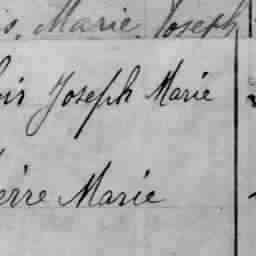 is, Marie, Joseph
ois Joseph Marie
ierre Marie